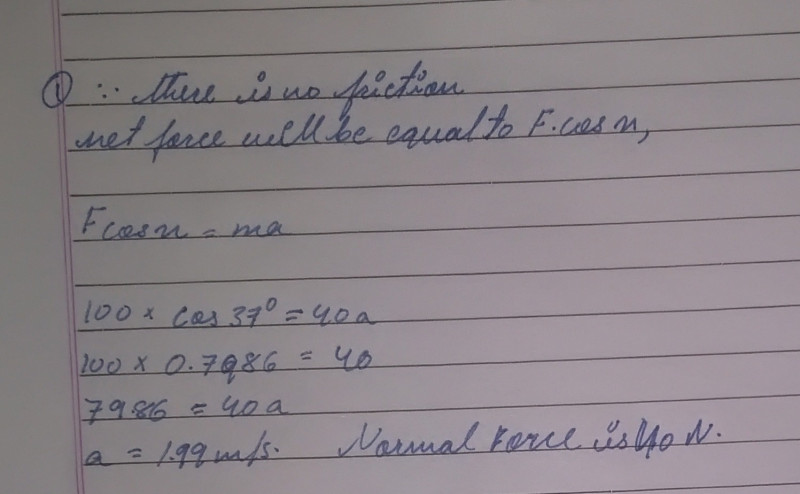 ① ∵ there is no friction
net force will be equal to F.cos x,
F cos x = ma
100 × cos 37° = 40a
100 × 0.7986 = 40
7986 = 40a
a = 1.99 m/s. Normal Force is 40 N.